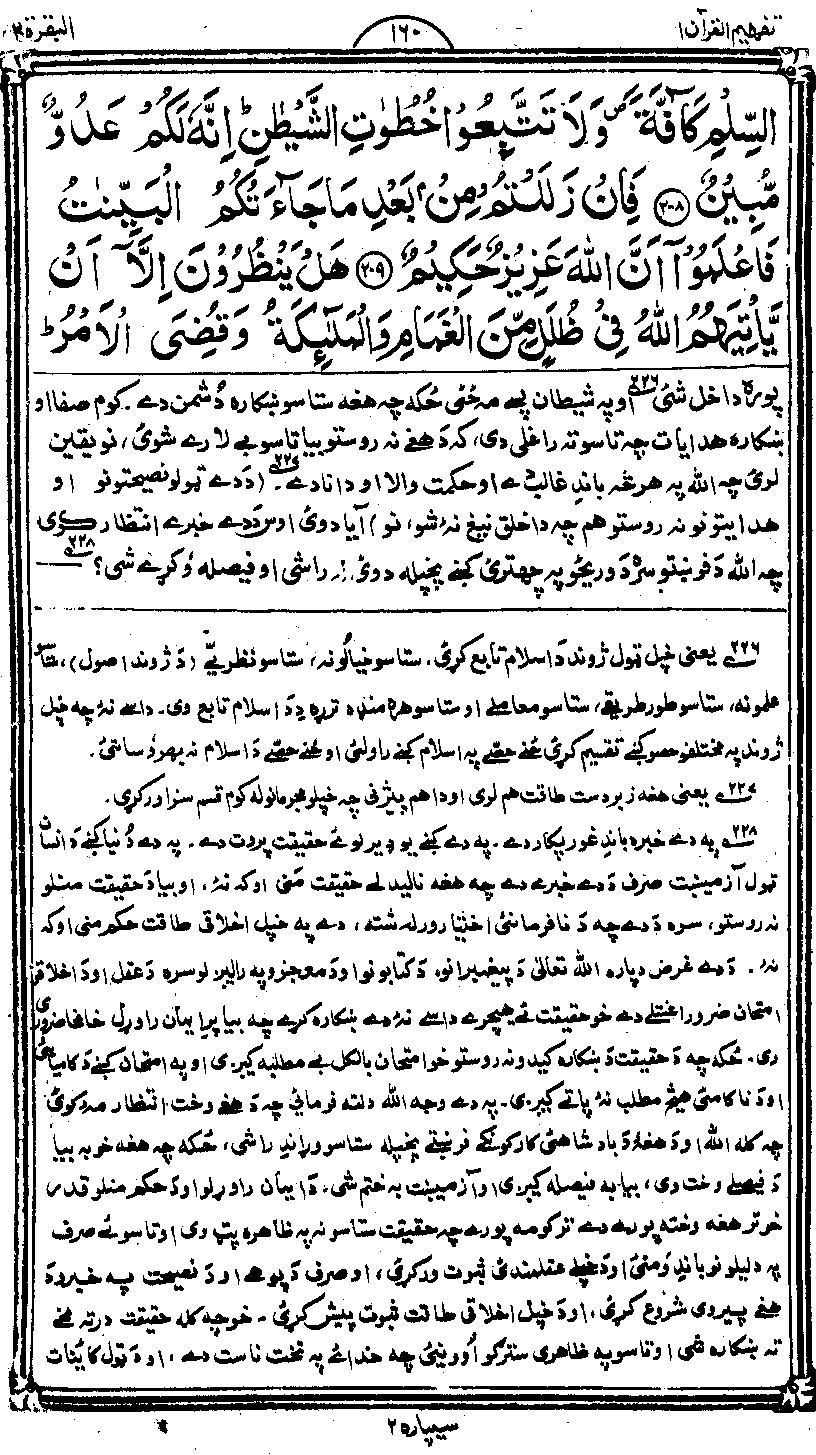 تفهيم القرآن ١
١٦٠
البقرة ٢
السِّلْمِ كَآفَّةً ۪ وَلَا تَتَّبِعُوْا خُطُوٰتِ الشَّيْطٰنِ ؕ اِنَّهٗ لَكُمْ عَدُوٌّ
مُّبِيْنٌ ﴿٢٠٨﴾ فَاِنْ زَلَلْتُمْ مِّنْۢ بَعْدِ مَا جَآءَتْكُمُ الْبَيِّنٰتُ
فَاعْلَمُوْۤا اَنَّ اللّٰهَ عَزِيْزٌ حَكِيْمٌ ﴿٢٠٩﴾ هَلْ يَنْظُرُوْنَ اِلَّاۤ اَنْ
يَّاْتِيَهُمُ اللّٰهُ فِيْ ظُلَلٍ مِّنَ الْغَمَامِ وَالْمَلٰٓئِكَةُ وَقُضِيَ الْاَمْرُ ؕ
پوره داخل شئ ٢٢٦ اوپه شيطان پسے مه ځئ ځکه چه هغه ستاسو ښکاره دُشمن دے. کوم صفا او
ښکاره هدايات چه تاسو ته راغلى دى، که دَهغے نه روستو بيا تاسو بے لارے شوئ، نو يقين
لرئ چه الله په هر څه باندِ غالب دے او حکمت والا او دانا دے. ٢٢٧ (دَدے ټولو نصيحتونو او
هدايتونو نه روستو هم چه دا خلق نيغ نۀ شو، نو) آيا دوئ اوس دَدے خبرے انتظار کوى
چه الله دَ فرښتو سره دَ وريځو په چهترئ کښے پخپله دوئ له راشى او فيصله وُکړے شى؟ ٢٢٨
٢٢٦ يعنى خپل ټول ژوند دَ اسلام تابع کړئ. ستاسو خيالُونه، ستاسو نظريے (دَ ژوند اصول)، ستاسو
علمونه، ستاسو طور طريقے، ستاسو معاملے او ستاسو هره منډه تررۀ دِ دَ اسلام تابع وى. داسے نۀ چه خپل
ژوند په مختلفو حصو کښے تقسيم کړئ ځنے حصے په اسلام کښے راولئ او ځنے حصے دَ اسلام نه بهر وُساتئ.
٢٢٧ يعنى هغه زبردست طاقت هم لرى او دا هم پيژنى چه خپلو مجرمانو له کوم قسم سزا ورکړى.
٢٢٨ په دے خبره باندِ غور پکار دے. په دے کښے يو ډير لوئے حقيقت پروت دے. په دے دُنيا کښے دَ انسان
ټول آزمېښت صرف دَدے خبرے دے چه هغه نا ليدلے حقيقت مَنى اوکه نۀ، او بيا دَ حقيقت منلو
نه روستو، سره دَدے چه دَ نافرمانئ اختيار ورله شته، دے په خپل اخلاقى طاقت حکم منى اوکه
نۀ. دَدے غرض دپاره الله تعالىٰ دَ پيغمبرانو، دَ کتابونو او دَ معجزو په راليږلو سره دَ عقل او دَ اخلاقو
امتحان ضرور اغستلے دے خو حقيقت ئے هيچرے داسے نۀ دے ښکاره کړے چه بيا پرے ايمان راوړل خامخا ضرورى
وى. ځکه چه دَ حقيقت دَ ښکاره کيدو نه روستو خو امتحان بالکل بے مطلبه کيږى او په امتحان کښے دَ کاميابئ
او دَ ناکامئ هيڅ مطلب نۀ پاتے کيږى. په دے وجه الله دلته فرمائى چه دَ هغے وخت انتظار مه کوئ
چه کله الله او دَ هغۀ دَ بادشاهئ کارکونکے فرښتے پخپله ستاسو وړاندِ راشى، ځکه چه هغه خو به بيا
دَ فيصلے وخت وى، بيا به فيصله کيږى او آزمېښت به ختم شى. دَ ايمان راوړلو او دَ حکم منلو قدر
خو تر هغه وخته پورے دے ترکومه پورے چه حقيقت ستاسو نه په ظاهره پټ وى او تاسو ئے صرف
په دليلونو باندِ وُمنئ او دَ خپلے عقلمندئ ثبوت ورکړئ، او صرف دَ پوهے او دَ نصيحت په خبرو دَ
هغے پيروى شروع کړئ، او دَ خپل اخلاقى طاقت ثبوت پيش کړئ. خو چه کله حقيقت درته مخے
ته ښکاره شى او تاسو په ظاهرى سترګو اُووينئ چه خدائے په تخت ناست دے، او دَ ټول کائنات
سيپاره ٢